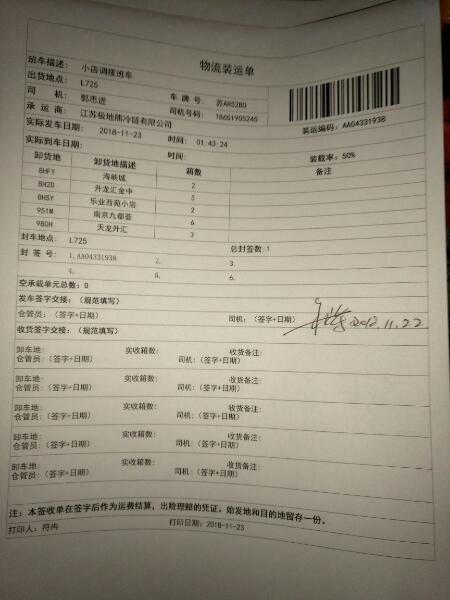 物流装运单
班车描述: 小店调拨班车
出货地点: L725
司 机: 郭思进 车 牌 号: 苏AR5280
承 运 商: 江苏极地熊冷链有限公司 司机号码: 18661905245
装运编码: AA04331938
实际发车日期: 2018-11-23 时间: 01:43:24
实际到车日期: 时间: 装载率: 50%
卸货地 卸货地描述 箱数 备注
8HFY 海峡城 2
8H2D 升龙汇金中 5
8HSY 乐业西苑小店 2
951M 南京九都荟 6
980H 天龙升汇 3
封车地点: L725 总封签数: 1
封 签 号: 1.AA04331938 2. 3.
4. 5. 6.
空承载单元总数: 0
发车签字交接: (规范填写)
仓管员: (签字+日期) 司机: (签字+日期) 2018.11.22
收货签字交接: (规范填写)
卸车地: 实收箱数: 收货备注:
仓管员: (签字+日期) 司机: (签字+日期)
卸车地: 实收箱数: 收货备注:
仓管员: (签字+日期) 司机: (签字+日期)
卸车地: 实收箱数: 收货备注:
仓管员: (签字+日期) 司机: (签字+日期)
卸车地: 实收箱数: 收货备注:
仓管员: (签字+日期) 司机: (签字+日期)
卸车地: 实收箱数: 收货备注:
仓管员: (签字+日期) 司机: (签字+日期)
注: 本签收单在签字后作为运费结算, 出险理赔的凭证。始发地和目的地留存一份。
打印人: 符冉 打印日期: 2018-11-23